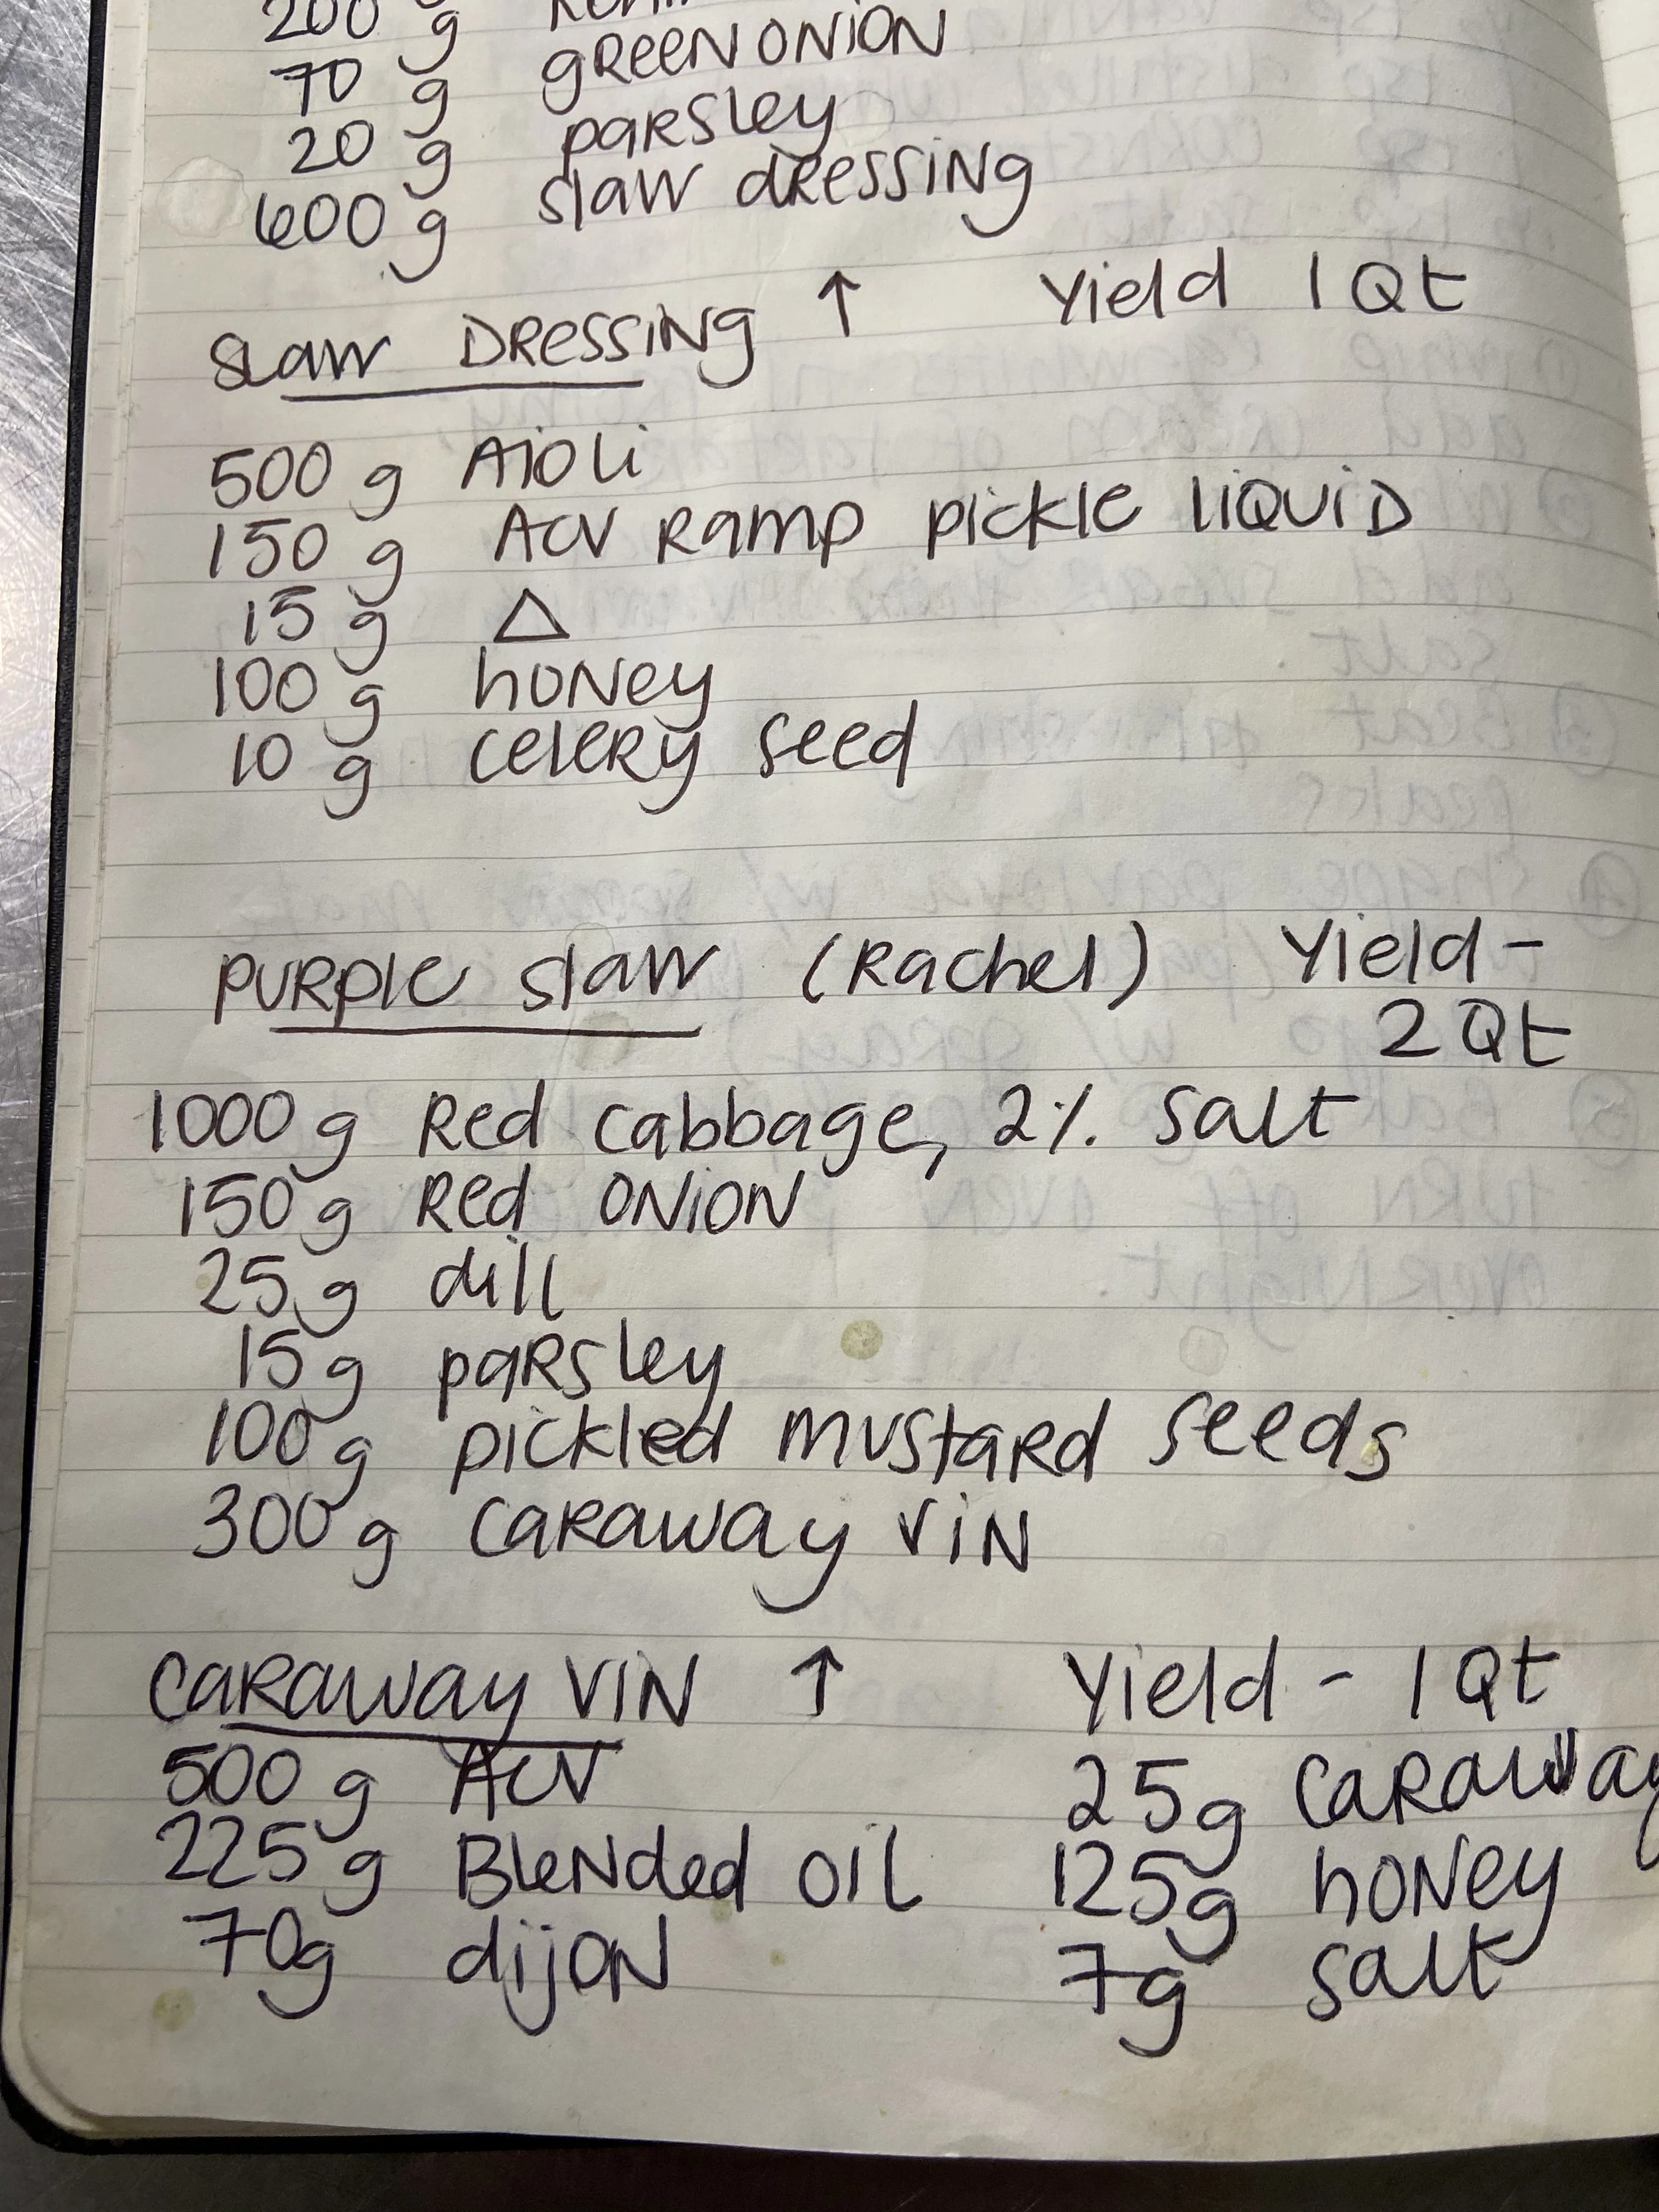 200 g
70 g green onion
20 g parsley
600 g slaw dressing
Slaw Dressing ↑ Yield 1 Qt
500 g Aioli
150 g ACV Ramp pickle liquid
15 g △
100 g honey
10 g celery seed
Purple Slaw (Rachel) Yield -
2 Qt
1000 g Red cabbage, 2% salt
150 g Red onion
25 g dill
15 g parsley
100 g pickled mustard seeds
300 g caraway vin
Caraway Vin ↑ Yield - 1 Qt
500 g ACV 25g caraway
225 g Blended oil 125g honey
70g dijon 7g salt